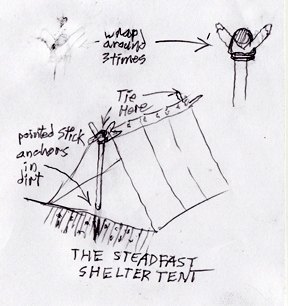 wrap
around
3 times
Tie
Here
pointed stick
anchors
in
dirt
THE STEADFAST
SHELTER TENT